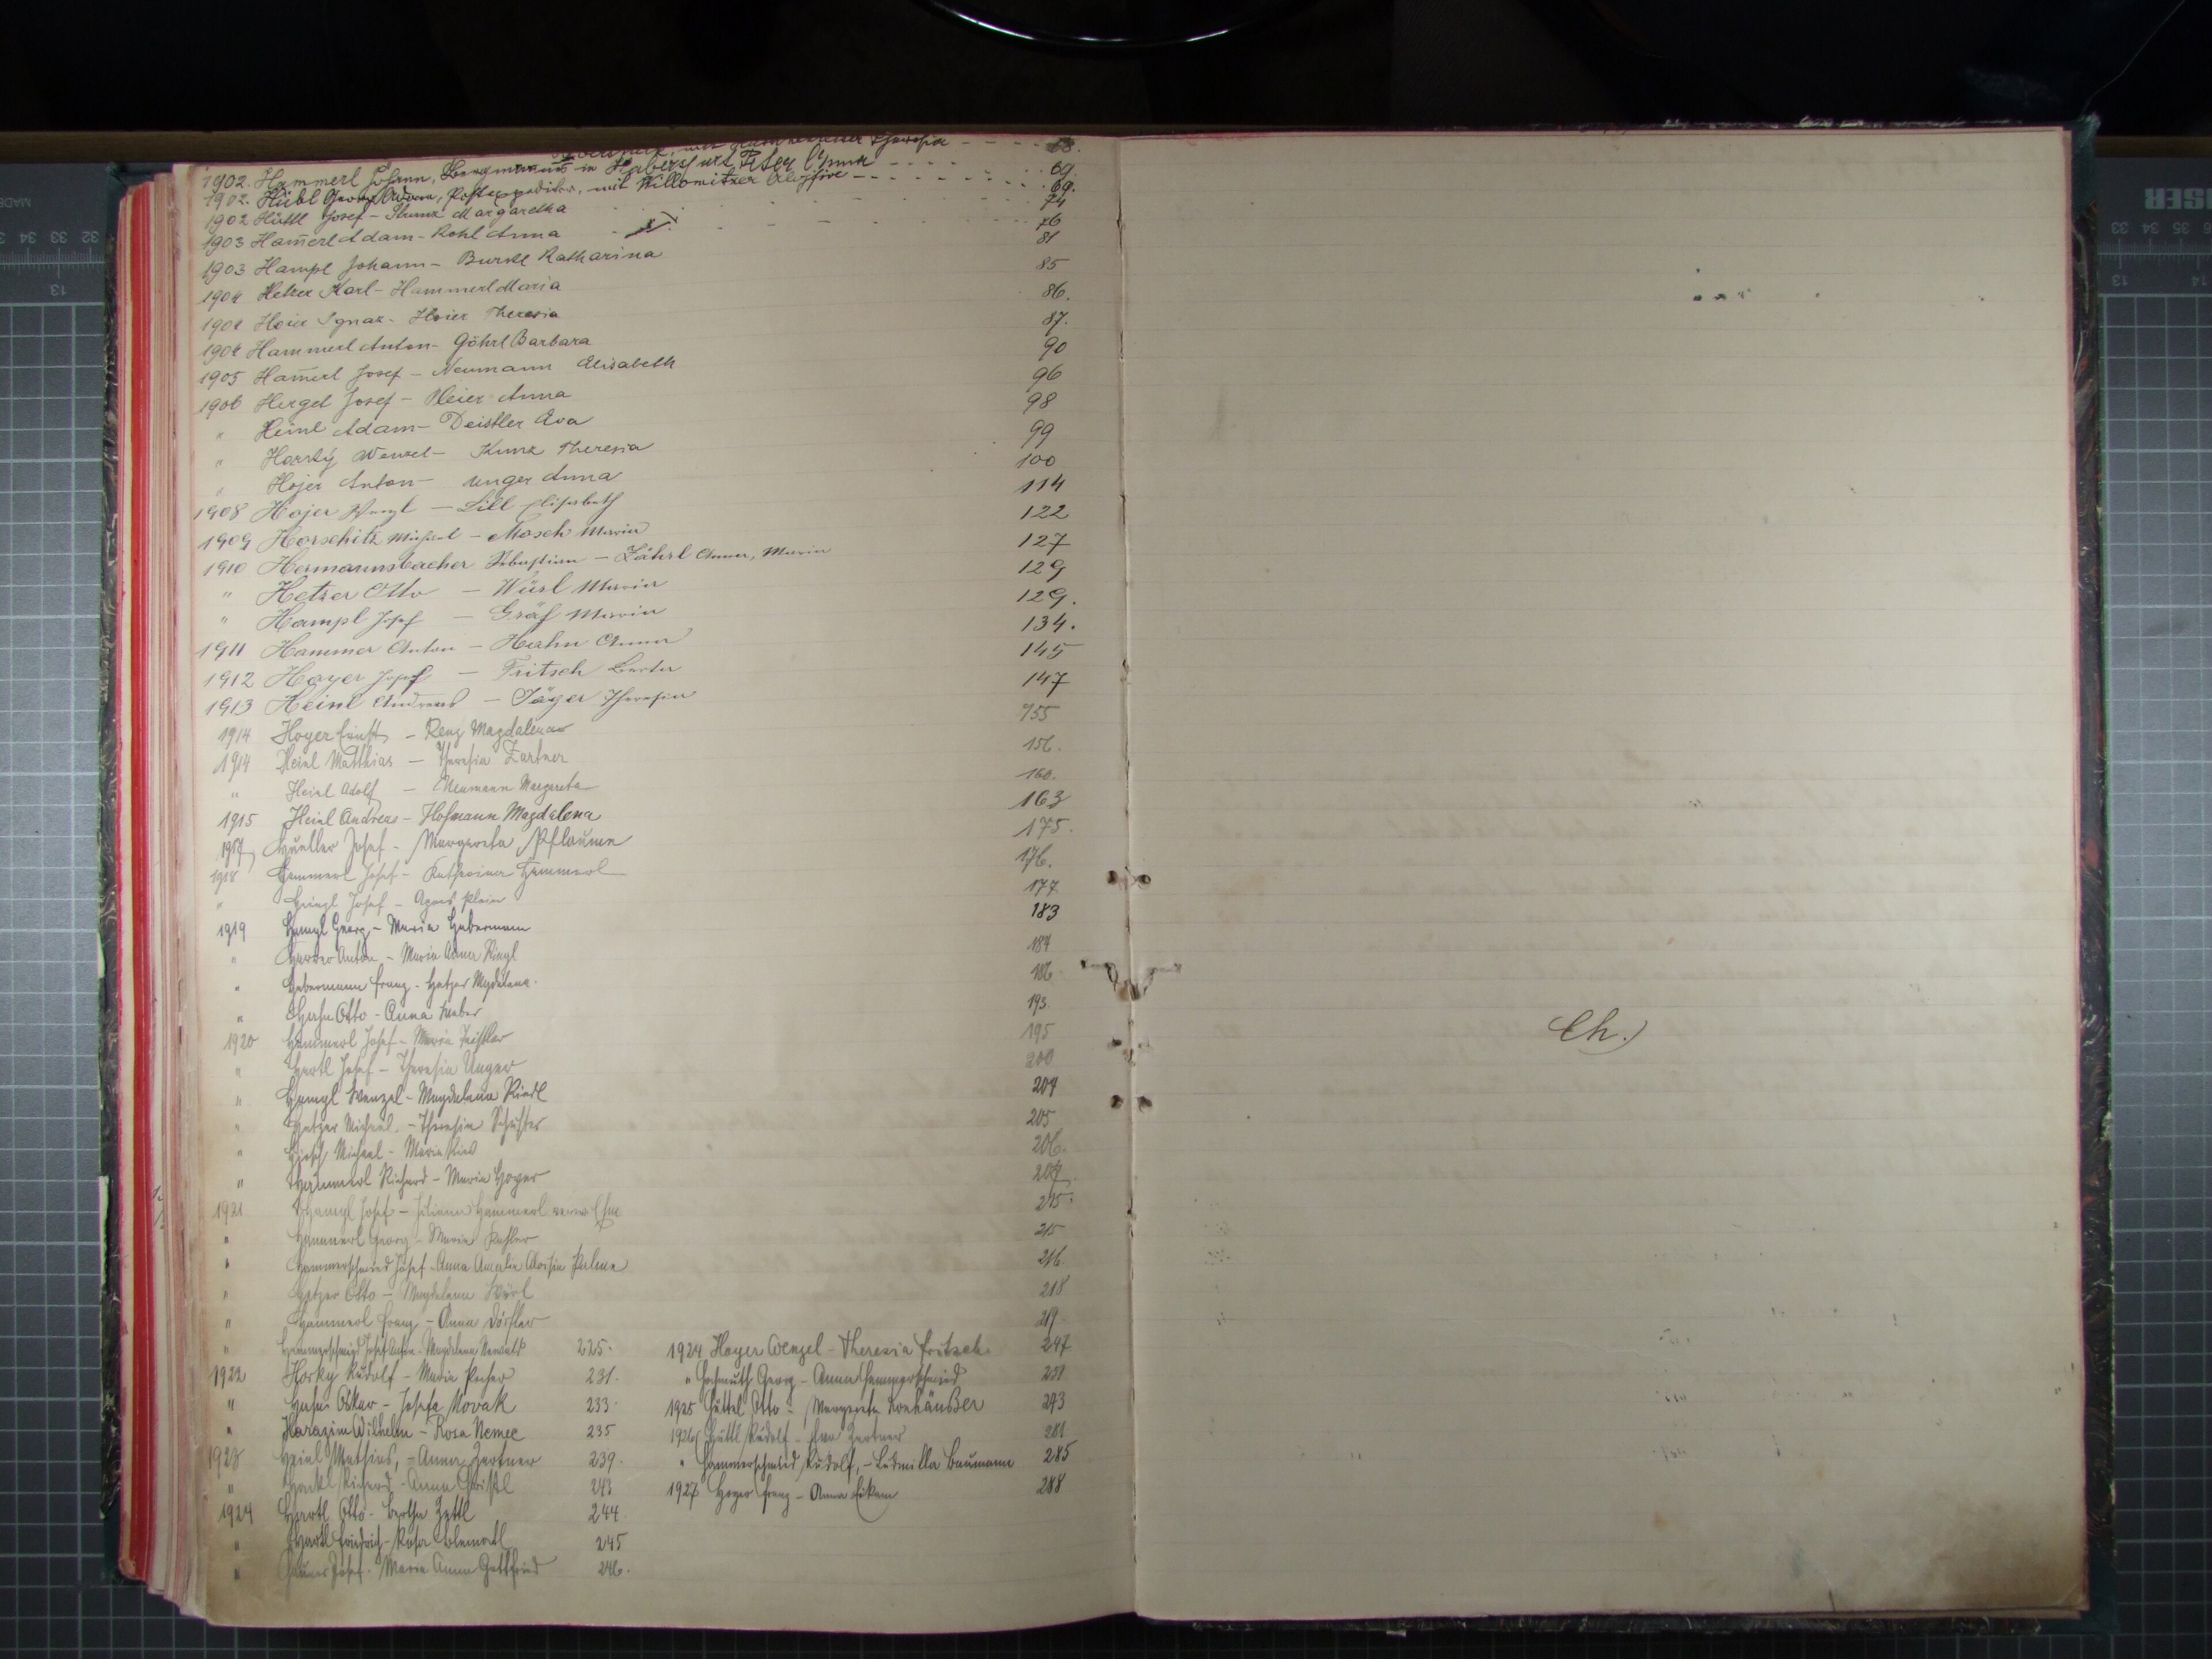 mit Theresia - - - 68.
1902. Hammerl Johann, Bergmann in Habersfurt Peter Anna - - - - . . 69.
1902. Hübl Georg Adam, Postexpeditor, mit Willomitzer Aloisia - - - - - - - . 69.
1902 Hüttl Josef - Kunz Margaretha 74
1903 Ham̅erl Adam - Kohl Anna 76
81
1903 Hampl Johann - Katharina 85
1904 Hetzer Karl - Hammerl Maria 86.
1904 Hoier Ignaz - Hoier Theresia 87.
1904 Hammerl Anton - Göhrl Barbara 90
1905 Ham̅erl Josef - Neumann Elisabeth 96
1906 Hergel Josef - Meier Anna 98
" Heinl Adam - Deistler Eva 99
" Horský Wenzel - Kunz Theresia 100
" Hojer Anton - Unger Anna 114
1908 Hojer Wenzl - Lill Elisabeth 122
1909 Horschitz Michael - Mosch Maria 127
1910 Hermannsbacher Sebastian - Zährl Anna, Maria 129
" Hetzer Otto - Würl Maria 129.
" Hampl Josef - Gräf Maria 134.
1911 Hammer Anton - Hahn Anna 145
1912 Hoyer Josef - Fritsch Berta 147
1913 Heinl Andreas - Jäger Theresia
1914 Hoyer Ernst - Renz Magdalena 155
1914 Heinl Matthias - Theresia Zartner 156.
" Heinl Adolf - Neumann Margareta 160.
1915 Heinl Andreas - Hofmann Magdalena 163
1917 Hueller Josef - Margareta Pflaume 175.
1918 Hammerl Josef - Katharina Hammerl 176.
" Heinzl Josef - Agnes Klein 177
1919 Hampl Georg - Maria Habermann 183
" Anton - Maria Anna Riedl 184
" Habermann Franz - Hetzer Magdalena. 186
" Hahn Otto - Anna Weber 193.
1920 Hammerl Josef - Maria Teistler 195
" Hartl Josef - Theresia Unger 200
" Hampl Wenzel - Magdalena Riedl 204
" Hetzer Michael - Theresia Schuster 205
" Hirsch Michael - Maria Ries 206.
" Hammerl Richard - Maria Hoyer 207.
1921 Hampl Josef - Juliana Hammerl 215.
" Hammerl Georg - Maria 215
" Hammerschmied Josef - Anna Amalia Aloisia Palme 216.
" Hetzer Otto - Magdalena Würl 218
" Hammerl Franz - Anna Dörfler 219
" Hammerschmied Josef Anton - Magdalena 225. 1924 Hoyer Wenzel - Theresia Fritsch. 247
1922 Horky Rudolf - Maria Pecher 231. " Hochmuth Georg - Anna Hammerschmied 251
" Hahn Oskar - Josefa Novak 233. 1925 Hüttel Otto - Margareta Konhäußer 273
" Harazim Wilhelm - Rosa Nemec 235 1926 Hüttl Rudolf - Eva Zartner 281
1923 Heinl Mathias, - Anna Zartner 239. " Hammerschmied Rudolf, - Ludmilla Baumann 285
" Hartl Richard - Anna Christl 243 1927 Hoyer Franz - Anna 288
1924 Hartl Otto - Bertha Zettl 244
" Hartl Friedrich - Rosa 245
" Josef - Maria Anna Gottfried 246.
Ch.)